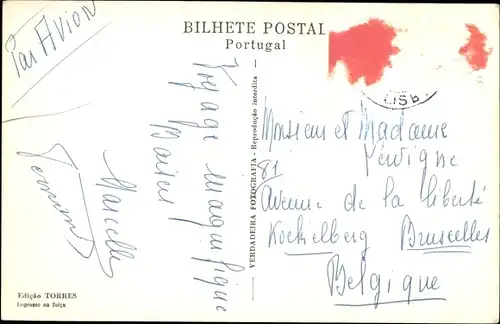 Par Avion
BILHETE POSTAL
Portugal
LISB
Voyage magnifique
Baisers
Marcelle
VERDADEIRA FOTOGRAFIA - Reprodução interdita
Monsieur et Madame
81
Avenue de la liberté
Koekelberg Bruxelles
Belgique
Edição TORRES
Impresso na Suíça